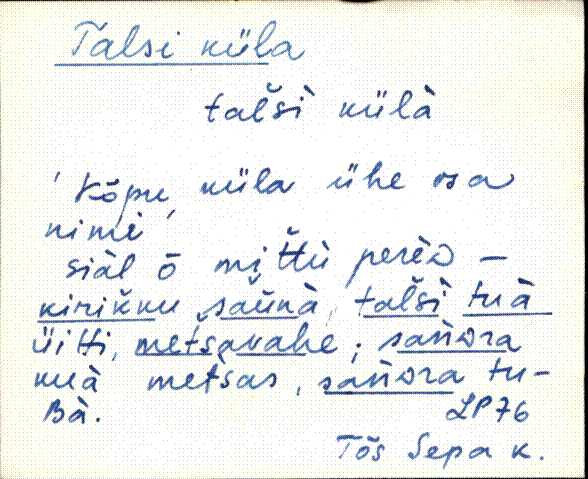 Talsi küla
talšì̬ külà
'Kõpu küla ühe osa
nimi'
siàl ō mi̬t̆t̆ù perèᴅ –
kirikku saŭnà, talšì tuà
üitti, metsavahe; sañᴅra
kuà metsas, sañᴅra tu-
ʙà.
LP76
Tõs Sepa k.